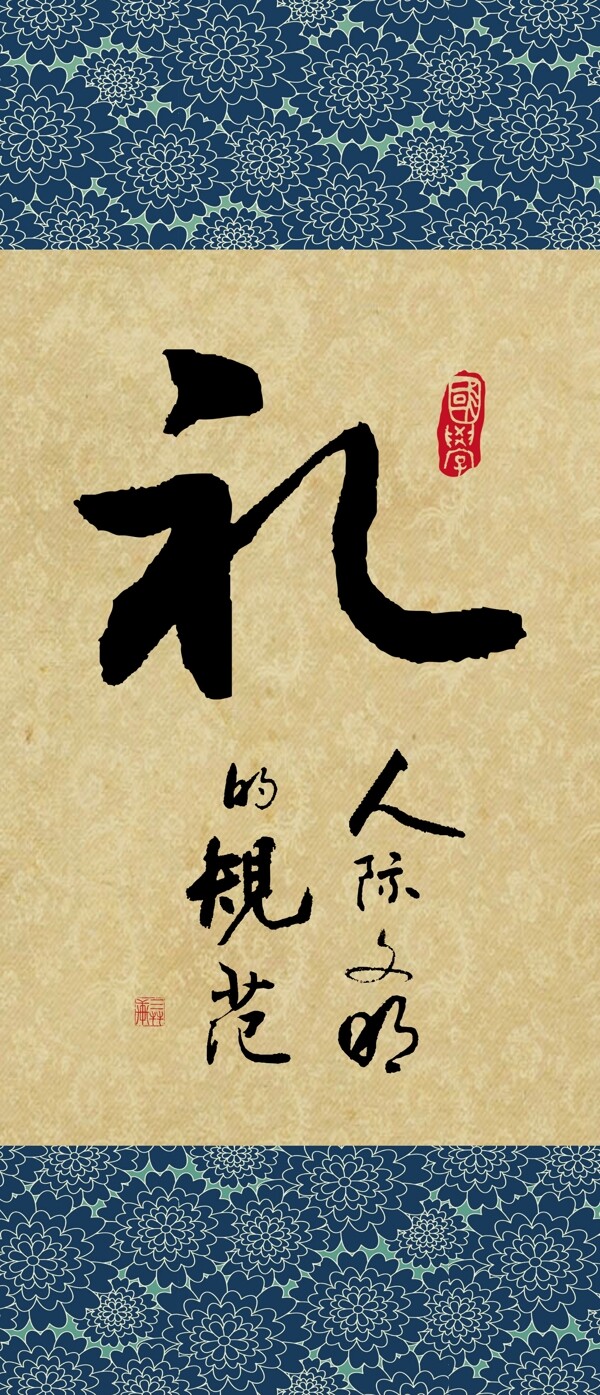 礼
國學
人际文明
的规范